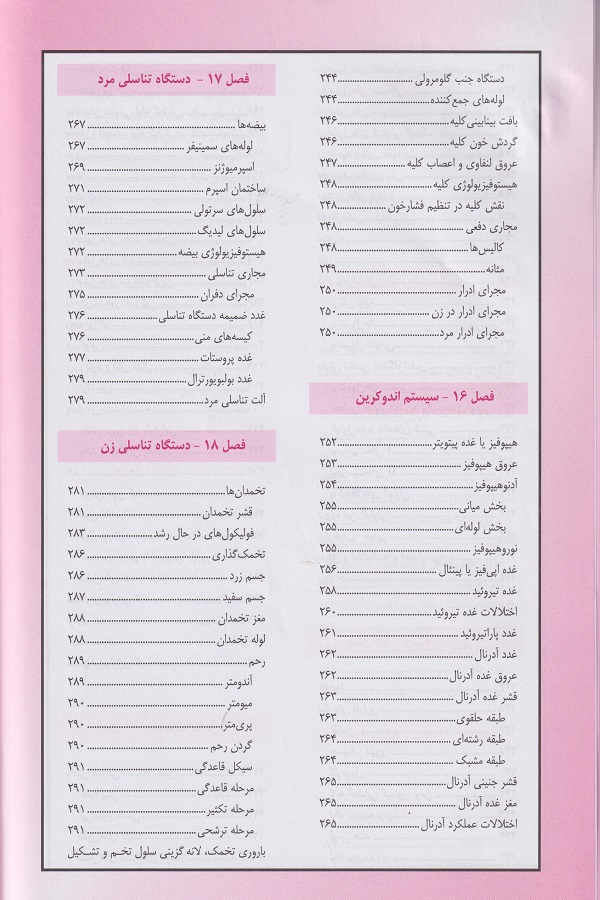 دستگاه جنب گلومرولی ..............................۲۴۴
لوله‌های جمع‌کننده..............................۲۴۴
بافت بینابینی کلیه..............................۲۴۶
گردش خون کلیه..............................۲۴۶
عروق لنفاوی و اعصاب کلیه ..............................۲۴۷
هیستوفیزیولوژی کلیه..............................۲۴۸
نقش کلیه در تنظیم فشارخون ....................۲۴۸
مجاری دفعی ..............................۲۴۸
کالیس‌ها..............................۲۴۸
مثانه..............................۲۴۹
مجرای ادرار ..............................۲۵۰
مجرای ادرار در زن ..............................۲۵۰
مجرای ادرار مرد..............................۲۵۰
فصل ۱۶ - سیستم اندوکرین
هیپوفیز یا غده پیتویتر..............................۲۵۲
عروق هیپوفیز ..............................۲۵۳
آدنوهیپوفیز..............................۲۵۴
بخش میانی..............................۲۵۵
بخش لوله‌ای..............................۲۵۵
نوروهیپوفیز..............................۲۵۵
غده اپی‌فیز یا پینئال ..............................۲۵۶
غده تیروئید..............................۲۵۸
اختلالات غده تیروئید..............................۲۶۰
غدد پاراتیروئید..............................۲۶۱
غدد آدرنال ..............................۲۶۲
عروق غده آدرنال..............................۲۶۲
قشر غده آدرنال ..............................۲۶۳
طبقه حلقوی..............................۲۶۳
طبقه رشته‌ای..............................۲۶۴
طبقه مشبک ..............................۲۶۴
قشر جنینی آدرنال..............................۲۶۵
مغز غده آدرنال ..............................۲۶۵
اختلالات عملکرد آدرنال..............................۲۶۵
فصل ۱۷ - دستگاه تناسلی مرد
بیضه‌ها ..............................۲۶۷
لوله‌های سمینیفر..............................۲۶۷
اسپرمیوژنز ..............................۲۶۹
ساختمان اسپرم ..............................۲۷۱
سلول‌های سرتولی ..............................۲۷۲
سلول‌های لیدیگ..............................۲۷۲
هیستوفیزیولوژی بیضه ..............................۲۷۲
مجاری تناسلی ..............................۲۷۳
مجرای دفران ..............................۲۷۵
غدد ضمیمه دستگاه تناسلی..............................۲۷۶
کیسه‌های منی ..............................۲۷۶
غده پروستات ..............................۲۷۷
غدد بولبویورترال ..............................۲۷۹
آلت تناسلی مرد..............................۲۷۹
فصل ۱۸ - دستگاه تناسلی زن
تخمدان‌ها..............................۲۸۱
قشر تخمدان..............................۲۸۱
فولیکول‌های در حال رشد ....................۲۸۳
تخمک‌گذاری..............................۲۸۶
جسم زرد ..............................۲۸۶
جسم سفید ..............................۲۸۷
مغز تخمدان ..............................۲۸۸
لوله تخمدان ..............................۲۸۸
رحم..............................۲۸۹
آندومتر ..............................۲۸۹
میومتر ..............................۲۹۰
پری‌متر..............................۲۹۰
گردن رحم ..............................۲۹۰
سیکل قاعدگی ..............................۲۹۱
مرحله قاعدگی..............................۲۹۱
مرحله تکثیر ..............................۲۹۱
مرحله ترشحی ..............................۲۹۱
باروری تخمک، لانه گزینی سلول تخـم و تشـکیل